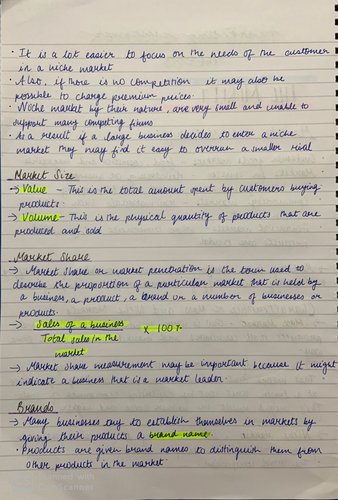 · It is a lot easier to focus on the needs of the customer
in a niche market
· Also, if there is no competition it may also be
possible to charge premium prices.
· Niche market by their nature, are very small and unable to
support many competing firms
· As a result if a large business decides to enter a niche
market they may find it easy to overrun a smaller rival
Market Size
→ Value - This is the total amount spent by customers buying
products.
→ Volume - This is the physical quantity of products that are
produced and sold
Market Share
→ Market share or market penetration is the term used to
describe the proportion of a particular market that is held by
a business, a product, a brand or a number of businesses or
products.
→ Sales of a business
Total sales in the
market
x 100%
→ Market share measurement may be important because it might
indicate a business that is a market leader.
Brands
→ Many businesses try to establish themselves in markets by
giving their products a brand name.
· Products are given brand names to distinguish them from
other products in the market